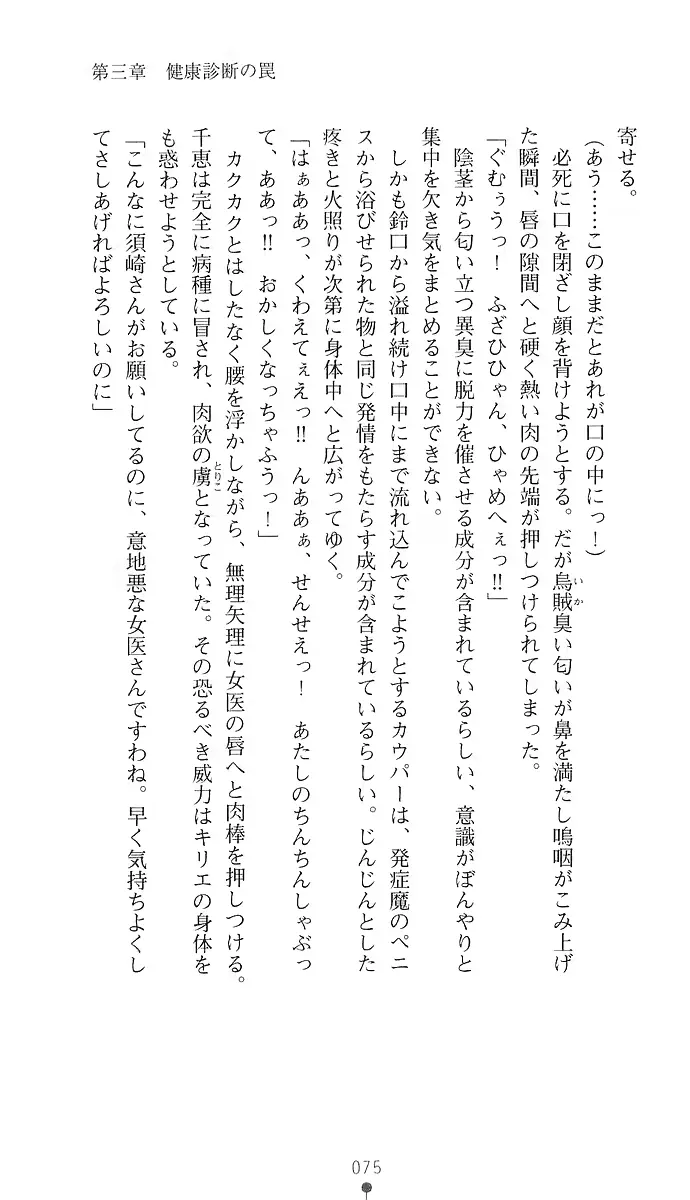 第三章　健康診断の罠
寄せる。
（あう……このままだとあれが口の中にっ！）
必死に口を閉ざし顔を背けようとする。だが烏賊臭い匂いが鼻を満たし嗚咽がこみ上げ
いか
た瞬間、唇の隙間へと硬く熱い肉の先端が押しつけられてしまった。
「ぐむぅうっ！　ふざひひゃん、ひゃめへぇっ‼」
陰茎から匂い立つ異臭に脱力を催させる成分が含まれているらしい、意識がぼんやりと
集中を欠き気をまとめることができない。
しかも鈴口から溢れ続け口中にまで流れ込んでこようとするカウパーは、発症魔のペニ
スから浴びせられた物と同じ発情をもたらす成分が含まれているらしい。じんじんとした
疼きと火照りが次第に身体中へと広がってゆく。
「はぁああっ、くわえてぇえっ‼　んああぁ、せんせえっ！　あたしのちんちんしゃぶっ
て、ああっ‼　おかしくなっちゃふうっ！」
カクカクとはしたなく腰を浮かしながら、無理矢理に女医の唇へと肉棒を押しつける。
千恵は完全に病種に冒され、肉欲の虜となっていた。その恐るべき威力はキリエの身体を
とりこ
も惑わせようとしている。
「こんなに須崎さんがお願いしてるのに、意地悪な女医さんですわね。早く気持ちよくし
てさしあげればよろしいのに」
075